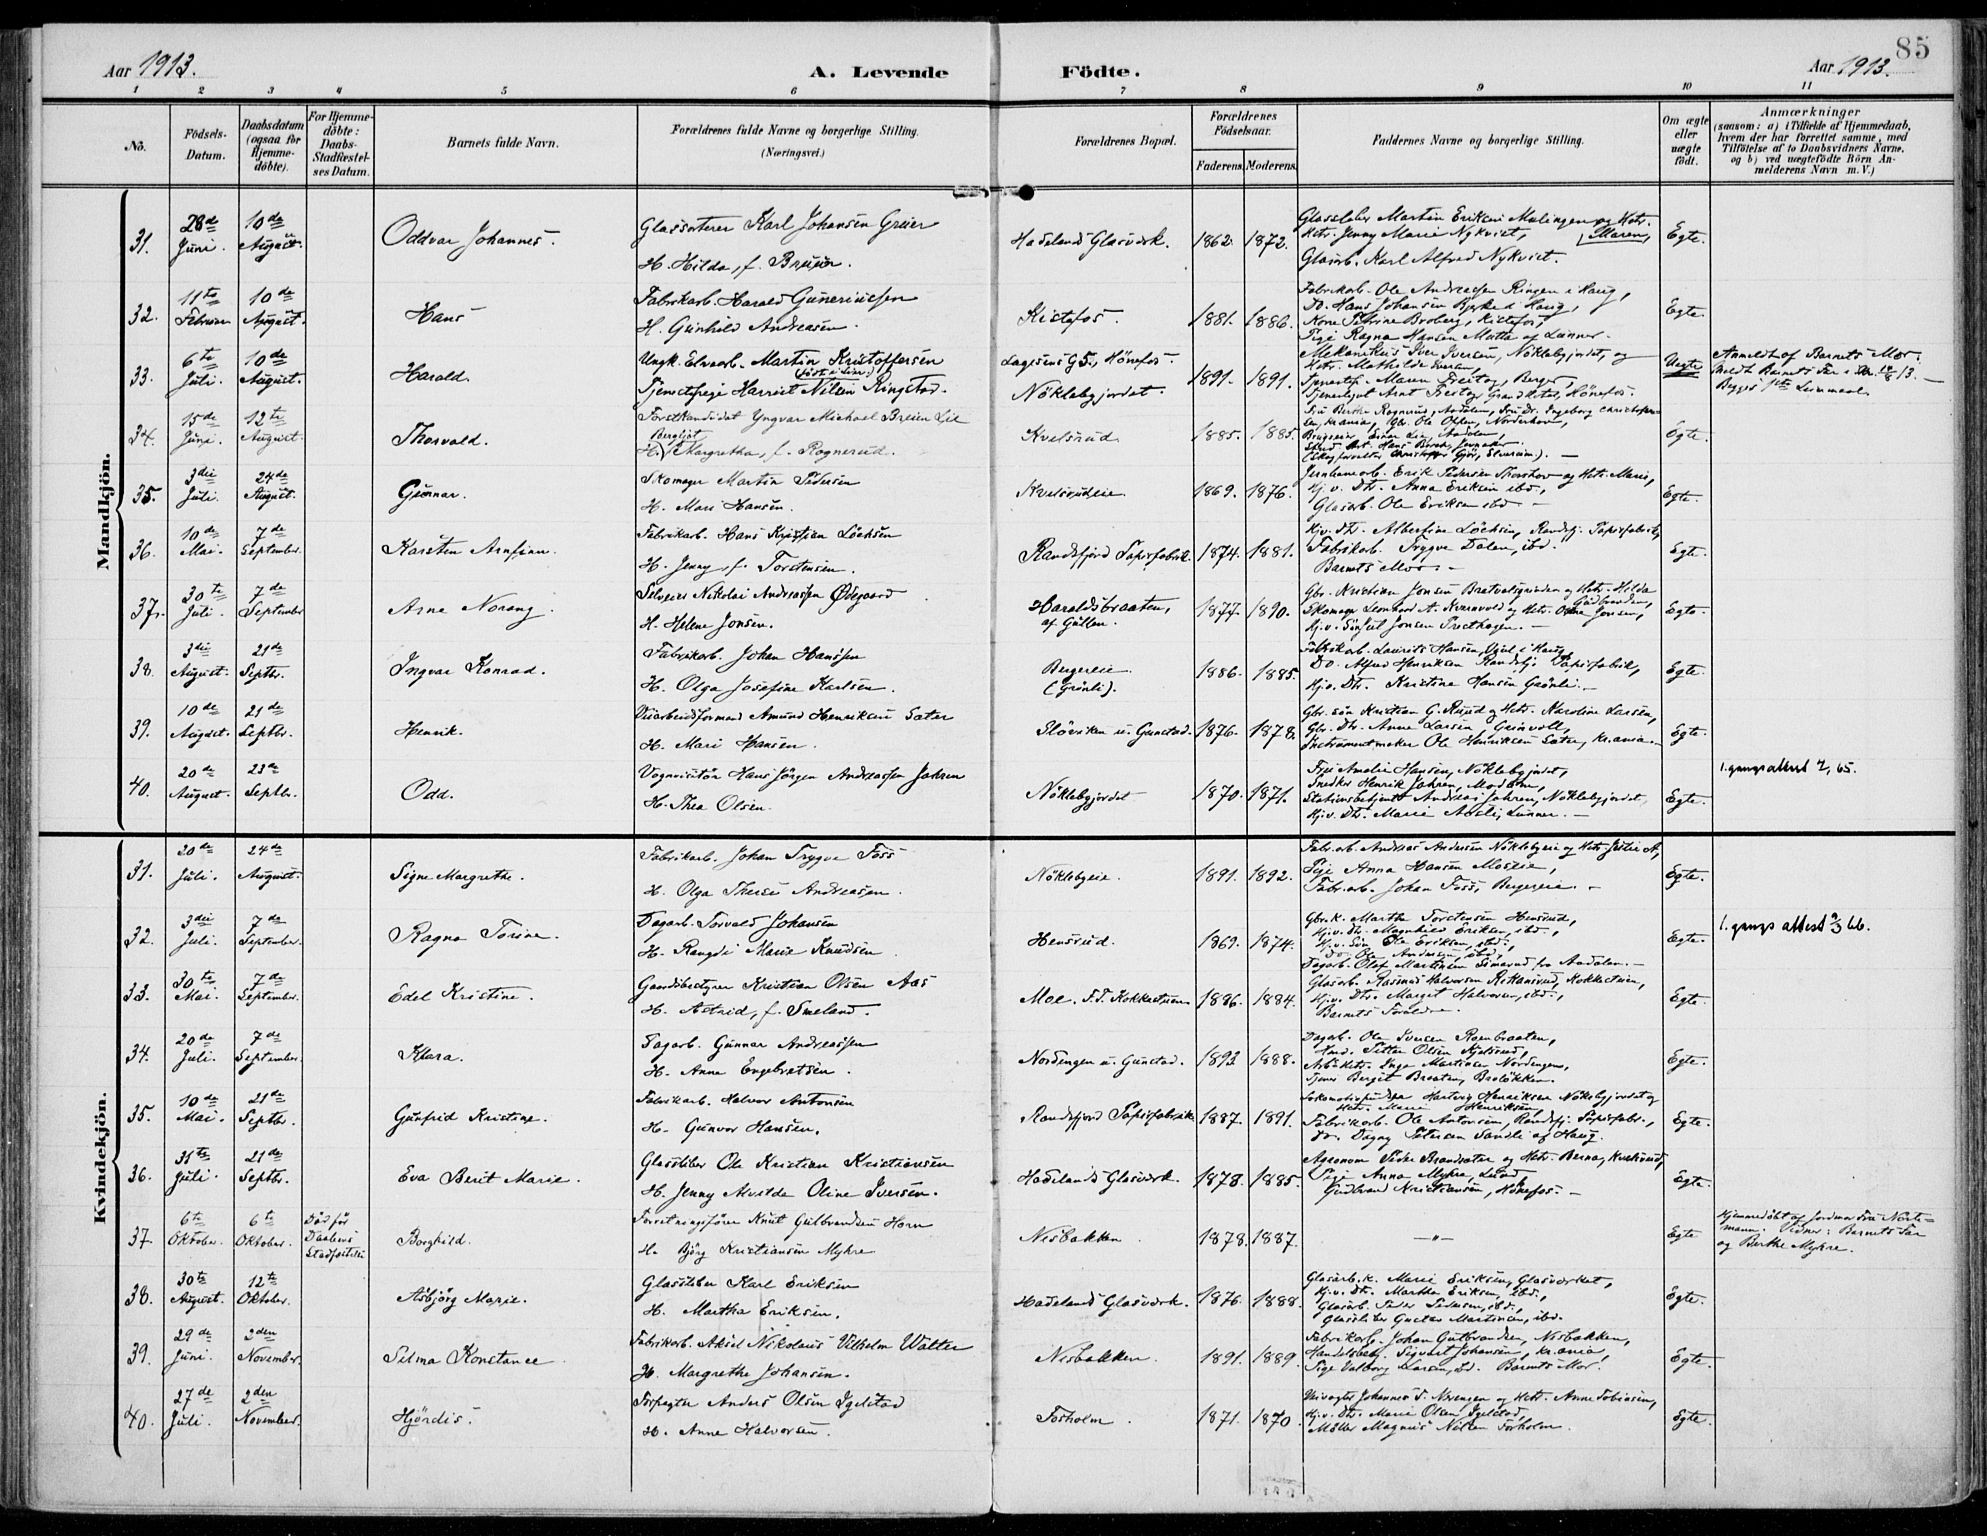 85
Aar 1913. A. Levende Fødte. Aar 1913.
1 2 3 4 5 6 7 8 9 10 11
No. Fødsels-Datum. Daabsdatum (ogsaa for Hjemmedøbte). For Hjemmedøbte: Daabs-Stadfæstelses Datum. Barnets fulde Navn. Forældrenes fulde Navne og borgerlige Stilling. (Næringsvei.) Forældrenes Bopæl. Forældrenes Fødselsaar. Faderens. Moderens. Faddernes Navne og borgerlige Stilling. Om ægte eller uægte født. Anmærkninger (saasom: a) i Tilfælde af Hjemmedaab, hvem der har forrettet samme, med Tilføielse af to Daabsvidners Navne, og b) ved uægtefødte Børn Anmelderens Navn m. V.)
Mandkjøn.
31. 28de Juni. 10de August. Oddvar Johannes. Glassorterer Karl Johansen Grüer H. Hilda, f. Hadelands Glasværk. 1862. 1872. Glassliber Martin Eriksen Malingen og Hstr. Maren, Hstr. Jenny Marie Nykvist, Glasarb. Karl Alfred Nykvist. Egte.
32. 11te Februar 10de August. Hans. Fabrikarb. Harald Gunerinssen H. Gunhild Andreasen. Kistefos. 1881. 1886. Fabrikarb. Ole Andreassen Ringen i Haug, Do. Hans Johansen i Haug, Kone Petrine Broberg, Kistefos, Pige Ragna Hansen af Lunner. Egte.
33. 6te Juli. 10de August. Harald. Ungk. Elvearb. Martin Kristoffersen Tjenestepige Harriet Nilsen Ringstad. Lagesens G 5, Hønefos. Nøklebyjordet. 1891. 1891. Mekanikus Iver Iversen, Nøklebyjordet, og Hstr. Mathilde Iversen, Maren Freitag, Berger, Arnt Freitag Grand Hotel, Hønefos. Uegte Anmeldt af Barnets Mor. Meldt Barnets Far i 19/8 13. Begges 1ste Leiermaal.
34. 15de Juni. 12te August. Thorvald. Forstkandidat Yngvar Michael Breien Lie H. Bergljot Margretha, f. Rognerud. Kvelsrud. 1885. 1885. Fru Berthe Rognerud, Aadalen, Fru Dr. Ingeborg Christofersen, Kr.ania, Gbr. Ole Olsen, Norderhov, Brugseier Einar Lie, Aadalen, Hans Borch, Jevnaker. Egte.
35. 3die Juli. 24de August. Gunnar. Skomager Martin Pedersen H. Mari Hansen. Kvelsrudeie. 1869. 1876. Jernbanearb. Erik Pedersen og Hstr. Marie, Hj.v. Dtr. Anna Eriksen ibd., Glasarb. Ole Eriksen ibd. Egte.
36. 10de Mai. 7de September. Karsten Arnfinn. Fabrikarb. Hans Kristian Löchsen H. Jenny, f. Torstensen. Randsfjord Papirfabrik. 1874. 1881. Hj.v. Dtr. Albertine Löchsen, Randsfj. Papirfabrik, Fabrikarb. Trygve Dalen, ibd. Barnets Mor. Egte.
37. 30te Juli. 7de September Arne Norang. Nikolai Andreassen Ødegaard H. Helene Jonsen. Haraldsbraaten, af Gullen. 1877. 1890. Gbr. Kristian Jonsen og Hstr. Hilda Skomager Lennard A. Kvernvold og Hstr. Jonsen, Hj.v. Jonsen Egte.
38. 3die August. 21de Septbr. Ingvar Konrad. Fabrikarb. Johan Hanssen H. Olga Josefine Karlsen. Bergereie (Grønli). 1886. 1885. Fabrikarb. Laurits Hansen, i Haug, Do. Alfred Henriksen Randsfj. Papirfabrik, Hj.v. Dtr. Kristine Hansen Grønli. Egte.
39. 10de August. 21de Septbr. Henrik. Veiarbeidsformand Amund Henriksen Sæter H. Mari Hansen. Sløviken u. Gunstad. 1876. 1878. Gbr. Søn Kristian G. Ruud og Hstr. Karoline Larsen, Gbr. Dtr. Anne Larsen Grinvoll, Instrumentmaker Ole Henriksen Sæter, Kr.ania. Egte.
40. 20de August. 23de Septbr. Odd. Vognvisitør Hans Jørgen Andreassen Jahren H. Thea Olsen. Nøklebyjordet 1870. 1871. Frøi Amalie Hansen, Nøklebyjordet, Snedker Henrik Jahren, Modum, Stationsbetjent Andreas Jahren, Nøklebyjordet, Hj.v. Dtr. Marie Lunner. Egte. 1. gangs attest 65.
Kvindekjøn.
31. 20de Juli. 24de August. Signe Margrethe. Fabrikarb. Johan Trygve Foss H. Olga Therese Andreasen. Nøklebyeie. 1891. 1892. Fabr.arb. Andreas Andersen Nøklebyeie og Hstr. Pige Anna Hansen Moseie, Fabr.arb. Johan Foss, Bergereie. Egte.
32. 3die Juli. 7de September. Ragna Torine. Dagarb. Torvald Johansen H. Rangdi Marie Knudsen. Hensrud. 1869. 1874. Gbr.k. Marthe Torstensen Hensrud, Hj.v. Dtr. Magnhild Eriksen, ibd., Hj.v. Søn Ole Eriksen, ibd., Do. Ole Andersen, ibd., Dagarb. Olaf Martinsen fra Aadalen. Egte. 1. gangs attest 9/3 66.
33. 30te Mai. 7de September. Edel Kristine. Gaardsbestyrer Kristian Olsen Aas H. Astrid, f. Smeland. Moe. T.T. Kokkestuen 1886. 1884. Glasarb. Rasmus Halvorsen Kokkestuen, Hj.v. Dtr. Margit Halvorsen, ibd., Barnets Forældre. Egte.
34. 20de Juli. 7de September. Klara. Dagarb. Gunnar Andreassen H. Anne Engebretsen. Nordengen u. Gunstad. 1893 1888. Dagarb. Ole Iversen Rosenbraaten, Petter Olsen Kjelsrud, Inga Martinsen Nordengen, Bergit Braaten, Broløkken. Egte.
35. 10de Mai. 21de Septbr. Gunfrid Kristine. Fabrikarb. Halvor Antonsen H. Gunvor Hansen. Randsfjord Papirfabrik 1887. 1891. Hartvig Henriksen Nøklebyjordet og Hstr. Marie Henriksen, Fabrikarb. Ole Antonsen, Randsfj. Papirfabr., do. Dagny Petersen Sandli af Haug. Egte.
36. 31te Juli. 21de Septbr. Eva Berit Marie. Glassliber Ole Kristian Kristiansen H. Jenny Alvilde Oline Iversen. Hadelands Glasværk. 1878. 1885. Agronom Peder Brandsæter og Hstr. Berna, Kvelsrud, Pige Anna Myhre, Lund, Gudbrand Kristiansen, Hønefos. Egte.
37. 6te Oktober. 6te Oktober. Død før Daabens Stadfæstelse Borghild. Forretningsfører Knut Gulbrandsen Horn H. Bjørg Kristiansen Myhre. Nesbakken. 1878. 1887. — „ — Egte Hjemmedøbt af Jordmor Fru Nortemann: Vidner: Barnets Far og Berthe Myhre.
38. 30te August. 12te Oktober. Asbjørg Marie. Glassliber Karl Eriksen H. Martha Eriksen. Hadelands Glasværk. 1876. 1888. Glasarb.k. Marie Eriksen, Glasværket, Hj.v. Dtr. Martha Eriksen, ibd., Glasarb. Peder Pedersen, ibd., Glassliber Gustav Martinsen, ibd. Egte.
39. 29de Juni. 2den November. Selma Konstance. Fabrikarb. Aksel Nikolaus Vilhelm Walter H. Margrethe Johansen. Nesbakken. 1891. 1889. Fabrikarb. Johan Gulbrandsen, Nesbakken, Handelsbetj. Sigvart Johansen, Kr.ania, Pige Valborg Larsen, ibd. Barnets Mor. Egte.
40. 27de Juli. 2den November. Hjördis. Forpagter Anders Olsen Igelstad H. Anne Halvorsen. Fosholm. 1871. 1870. Veivogter Johannes T. Morengen og Hstr. Anne Tobiasen, Hj.v. Dtr. Marie Olsen Igelstad, Møller Magnus Nilsen Fosholm. Egte.